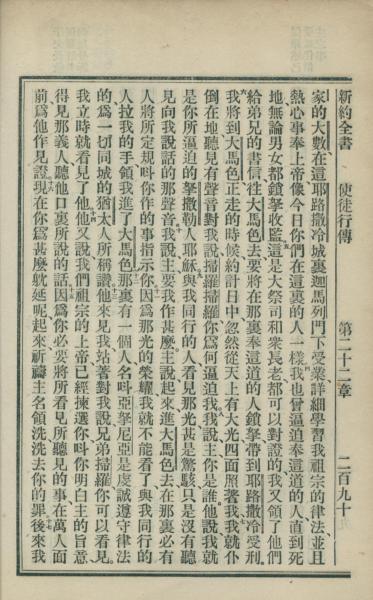 新約全書 使徒行傳 第二十二章 二百九十
家的大數在這耶路撒冷城裏迦馬列門下受業詳細學習我祖宗的律法並且
熱心事奉上帝像今日你們在這裏的人一樣我也曾逼迫奉這道的人直到死
地無論男女都鎖拏收監這是大祭司和衆長老都可以對證的我又領了他們
給弟兄的書信往大馬色去要將在那裏奉這道的人鎖拏帶到耶路撒冷受刑
我將到大馬色正走的時候約計日中忽然從天上有大光四面照著我我就仆
倒在地聽見有聲音對我說掃羅掃羅你爲何逼迫我我說主你是誰他說我就
是你所逼迫的拏撒勒人耶穌與我同行的人看見那光甚是驚駭只是沒有聽
見向我說話的那聲音我說主要我作甚麽主說起來進大馬色去在那裏必有
人將所定規呌你作的事指示你因爲那光的榮耀我就不能看了與我同行的
人拉我的手領我進了大馬色那裏有一個人名呌亞拏尼亞是虔誠遵守律法
的爲一切同城的猶太人所稱讚他來見我站著對我說兄弟掃羅你可以看見
我立時就看見了他他又說我們祖宗的上帝已經揀選你呌你明白主的旨意
得見那義人聽他口裏所說的話因爲你必要將所看見所聽見的事在萬人面
前爲他作見證現在你爲甚麽躭延呢起來祈禱主名領洗洗去你的罪後來我